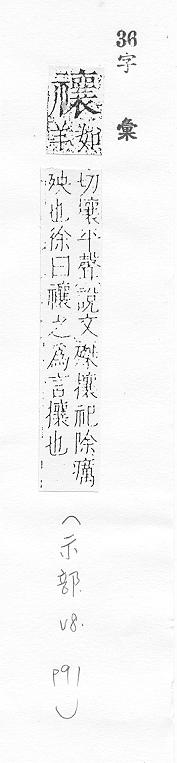 36
字彙
禳 如羊
切壤平聲說文磔攘祀除癘
殃也徐曰禳之為言攘也
(示部 V8. P91)